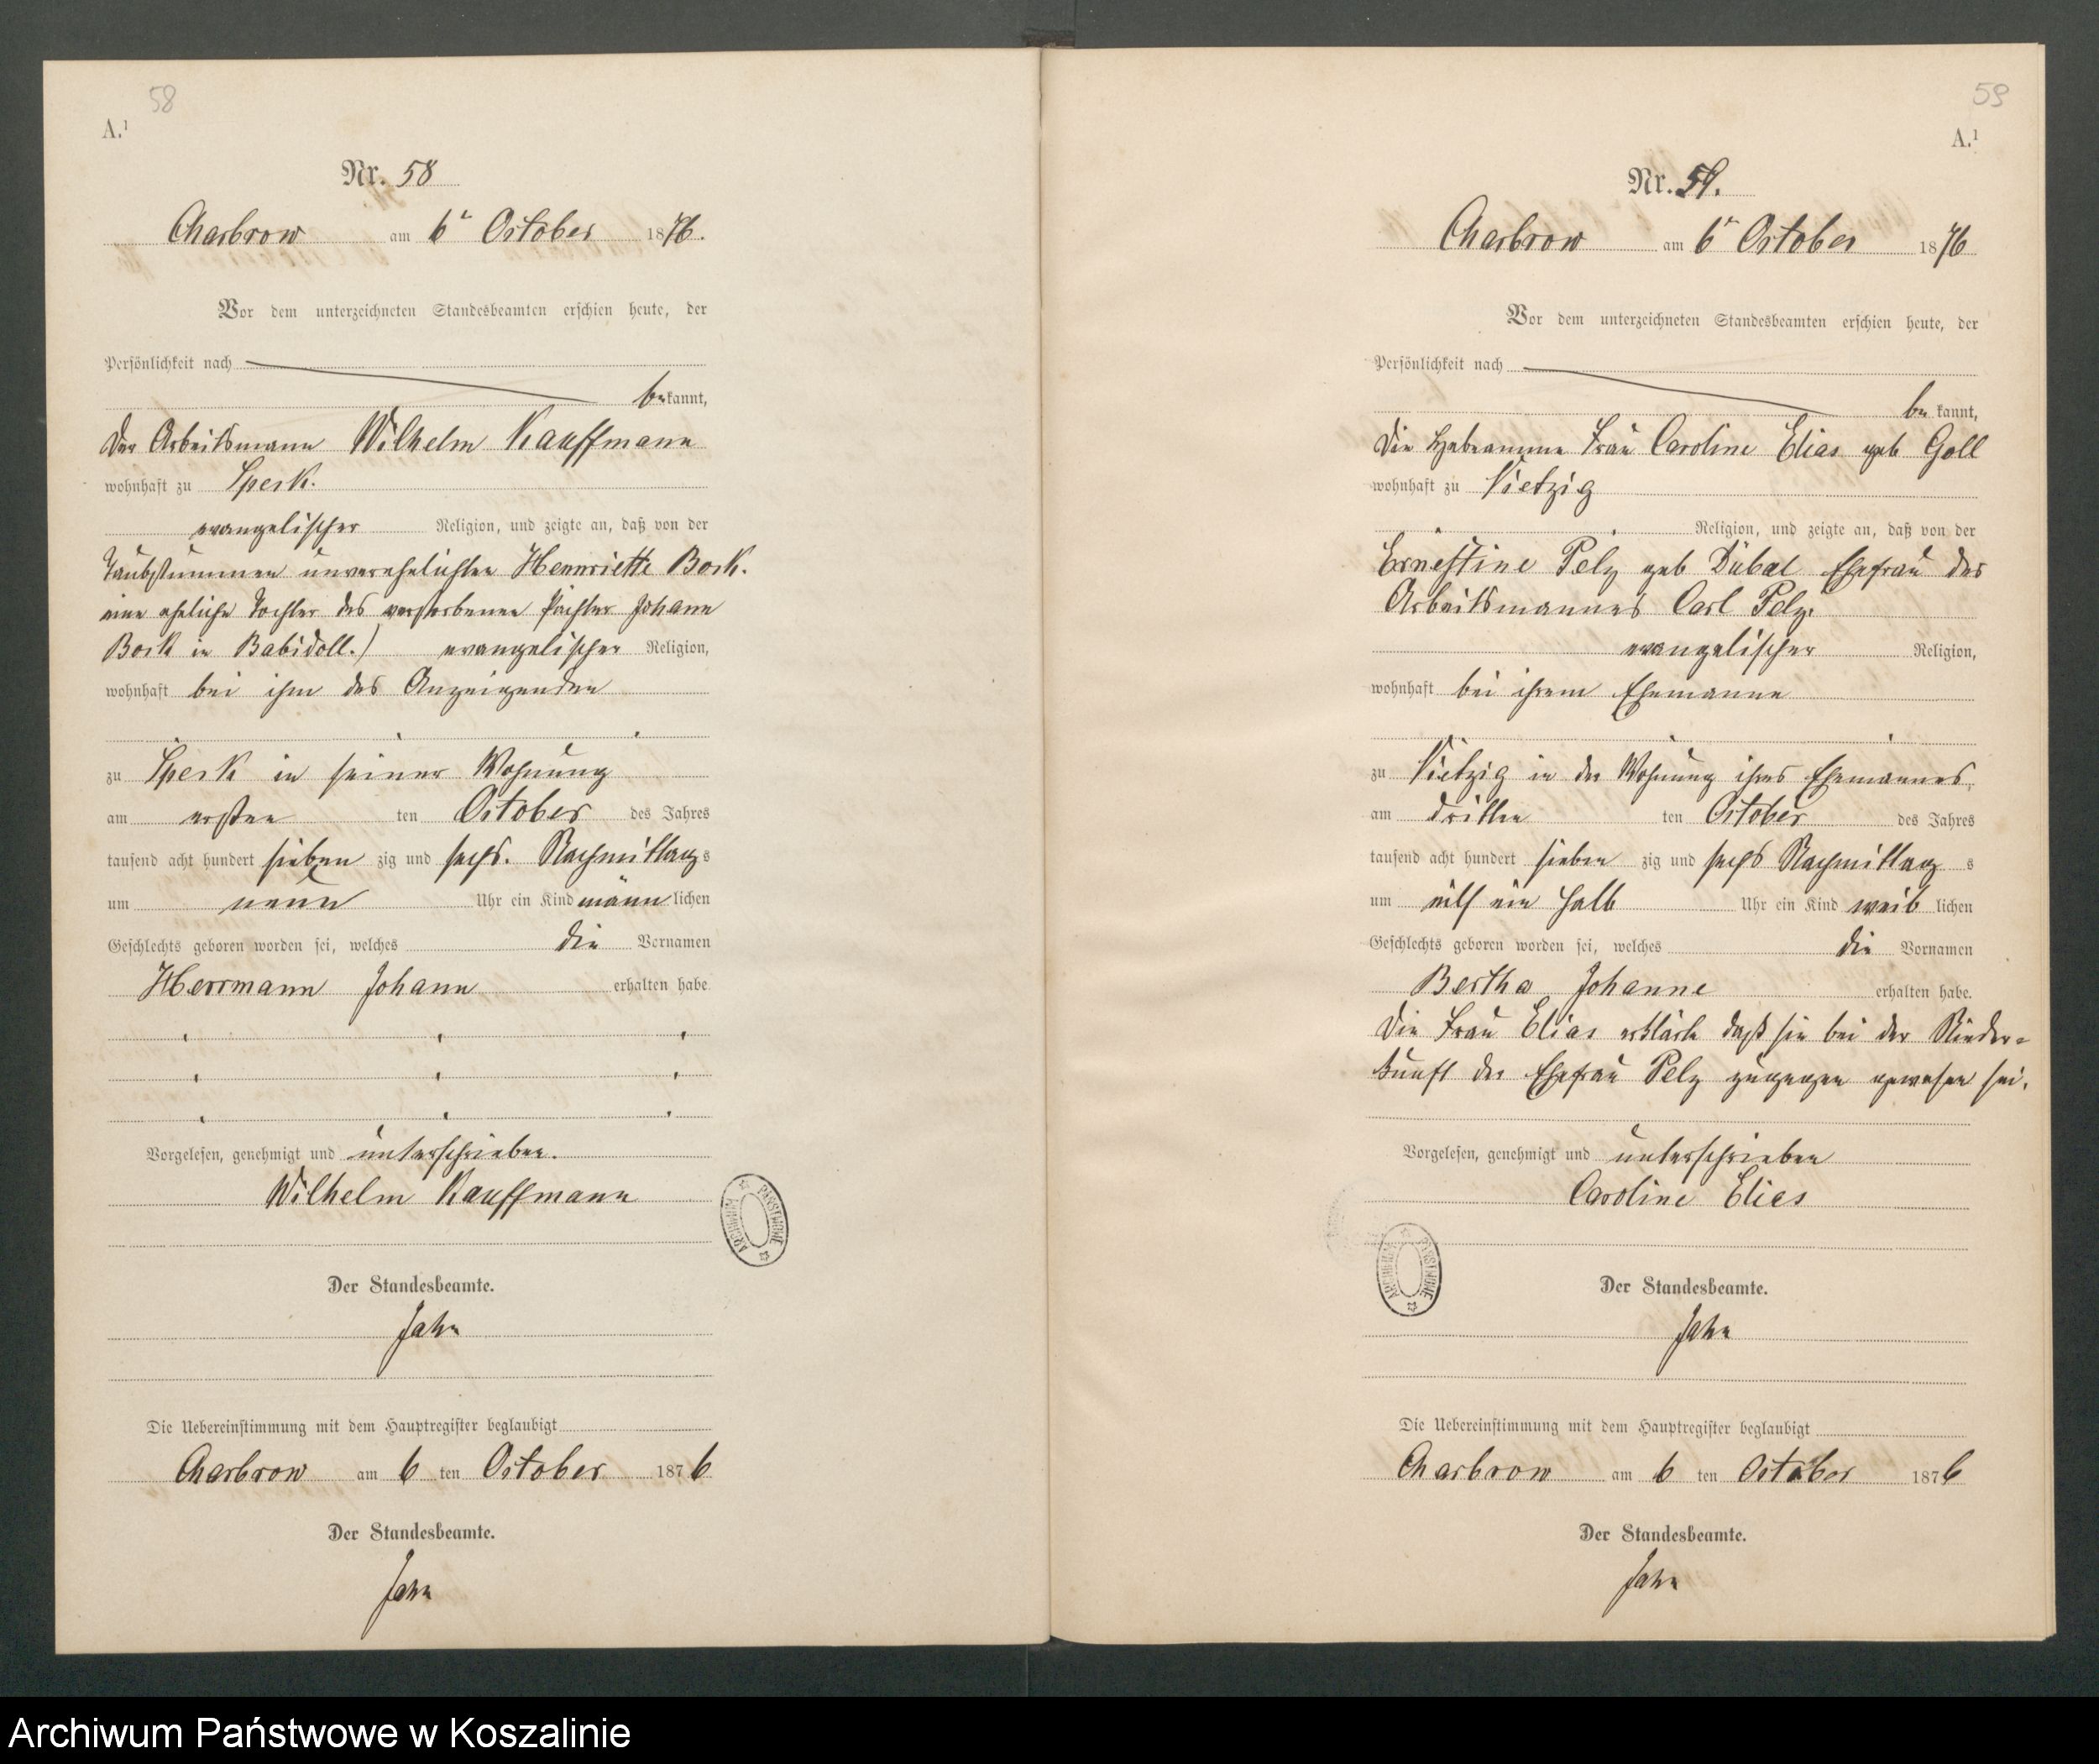 58
A.¹
Nr. 58
Charbrow am 6ⁿ October 1876.
Vor dem unterzeichneten Standesbeamten erschien heute, der
Persönlichkeit nach
bekannt,
Der Arbeitsmann Wilhelm Kauffmann
wohnhaft zu Speck.
evangelischer Religion, und zeigte an, daß von der
Taubstummen unverehelichten Hennriette Bock.
eine eheliche Tochter des verstorbenen Pächter Johann
Bock in Babidoll.) evangelischer Religion,
wohnhaft bei ihm des Anzeigenden
zu Speck in seiner Wohnung
am ersten ten October des Jahres
tausend acht hundert sieben zig und sechs. Nachmittags
um neun Uhr ein Kind männlichen
Geschlechts geboren worden sei, welches die Vornamen
Herrmann Johann erhalten habe
Vorgelesen, genehmigt und unterschrieben.
Wilhelm Kauffmann
ARCHIWUM PAŃSTWOWE
Der Standesbeamte.
Jahn
Die Uebereinstimmung mit dem Hauptregister beglaubigt
Charbrow am 6 ten October 1876
Der Standesbeamte.
Jahn
59
A.¹
Nr. 59.
Charbrow am 6ⁿ October 1876
Vor dem unterzeichneten Standesbeamten erschien heute, der
Persönlichkeit nach
bekannt,
Die Hebeamme Frau Caroline Elias geb Goll
wohnhaft zu Vietzig
Religion, und zeigte an, daß von der
Ernestine Pelz geb Dubal Ehefrau des
Arbeitsmannes Carl Pelz.
evangelischer Religion,
wohnhaft bei ihrem Ehemanne
zu Vietzig in der Wohnung ihres Ehemannes,
am dritten ten October des Jahres
tausend acht hundert sieben zig und sechs Nachmittag s
um eilf ein halb Uhr ein Kind weiblichen
Geschlechts geboren worden sei, welches die Vornamen
Bertha Johanne erhalten habe.
Die Frau Elias erklärte daß sie bei der Nieder=
kunft der Ehefrau Pelz zugegen gewesen sei.
Vorgelesen, genehmigt und unterschrieben
Caroline Elias
ARCHIWUM PAŃSTWOWE
Der Standesbeamte.
Jahn
Die Uebereinstimmung mit dem Hauptregister beglaubigt
Charbrow am 6 ten October 1876
Der Standesbeamte.
Jahn
Archiwum Państwowe w Koszalinie